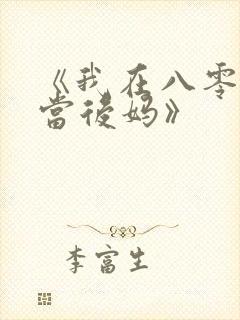 《我在八零
當後妈》
李富生